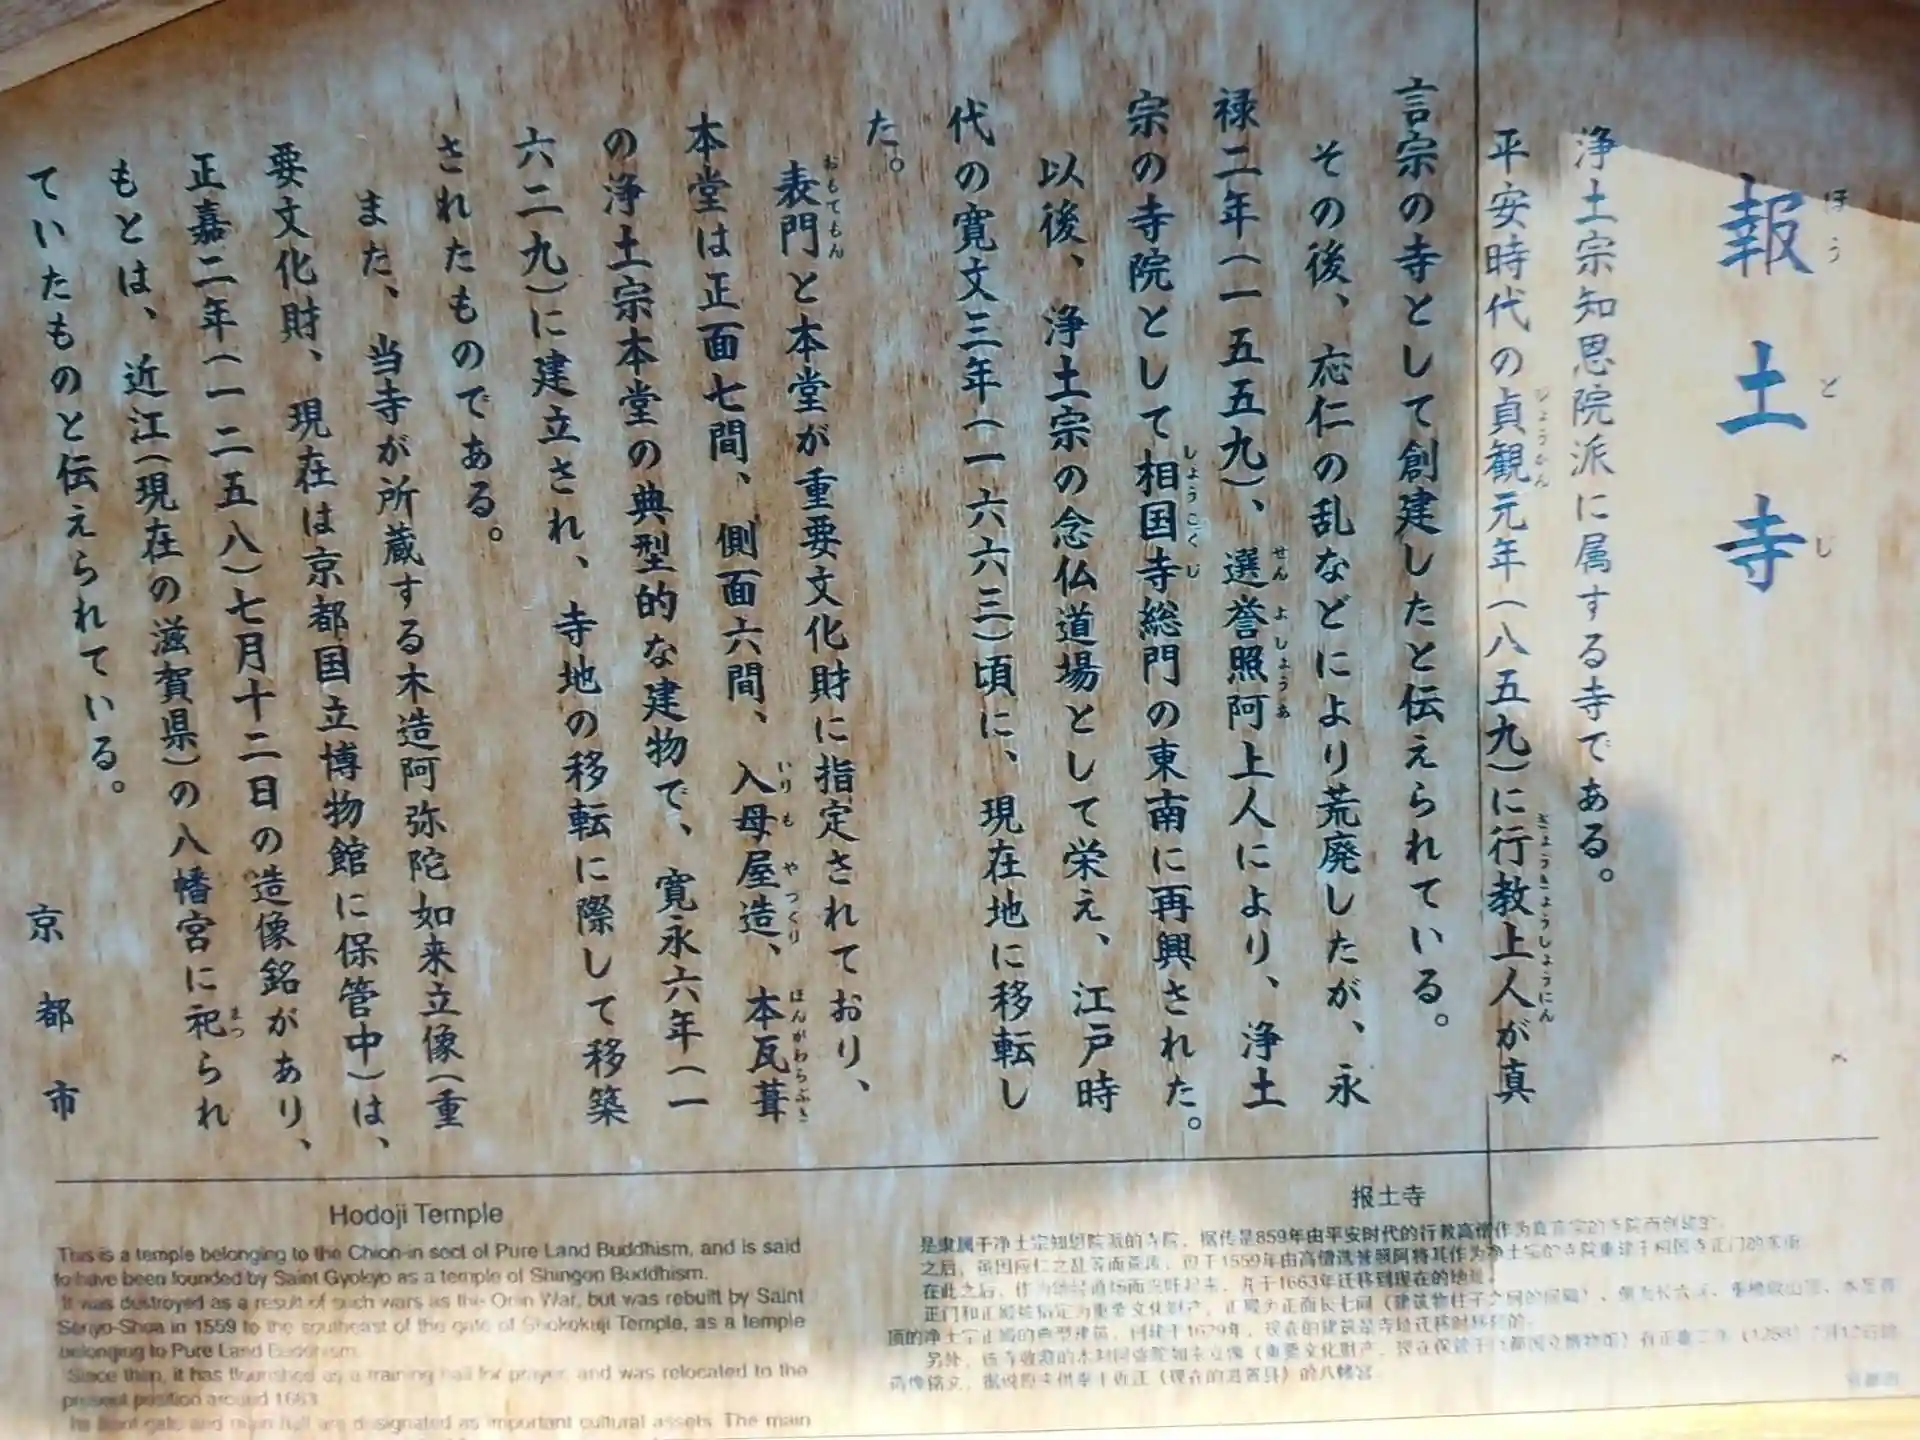 報土寺
ほうどじ
浄土宗知恩院派に属する寺である。
平安時代の貞観元年(八五九)に行教上人が真
じょうがん
ぎょうきょうしょうにん
言宗の寺として創建したと伝えられている。
その後、応仁の乱などにより荒廃したが、永
禄二年(一五五九)、選誉照阿上人により、浄土
せんよしょうあ
宗の寺院として相国寺総門の東南に再興された。
しょうこくじ
以後、浄土宗の念仏道場として栄え、江戸時
代の寛文三年(一六六三)頃に、現在地に移転し
た。
表門と本堂が重要文化財に指定されており、
おもてもん
本堂は正面七間、側面六間、入母屋造、本瓦葺
いりもやづくり
ほんがわらぶき
の浄土宗本堂の典型的な建物で、寛永六年(一
六二九)に建立され、寺地の移転に際して移築
されたものである。
また、当寺が所蔵する木造阿弥陀如来立像(重
要文化財、現在は京都国立博物館に保管中)は、
正嘉二年(一二五八)七月十二日の造像銘があり、
もとは、近江(現在の滋賀県)の八幡宮に祀られ
まつ
ていたものと伝えられている。
京都市
Hodoji Temple
This is a temple belonging to the Chion-in sect of Pure Land Buddhism, and is said
to have been founded by Saint Gyokyo as a temple of Shingon Buddhism.
It was destroyed as a result of such wars as the Onin War, but was rebuilt by Saint
Senyo-Shoa in 1559 to the southeast of the gate of Shokokuji Temple, as a temple
belonging to Pure Land Buddhism.
Since then, it has flourished as a training hall for prayer, and was relocated to the
present position around 1663
front gate and main hall are designated as important cultural assets. The main
报土寺
是隶属于净土宗知恩院派的寺院，据传是859年由平安时代的行教高僧作为真言宗的寺院而创建的。
之后，因应仁之乱等而荒废，但于1559年由高僧选誉照阿将其作为净土宗的寺院重建于相国寺正门的东南。
在此之后，作为念经道场而兴旺起来，并于1663年迁移到现在的地址。
正门和正殿被指定为重要文化财产，正殿为正面长七间（建筑物柱子之间的间隔）、
顶的净土宗正殿的典型建筑，创建于1629年，
另外，该寺收藏的木制阿弥陀如来立像（重要文化财产，现在保管于京都国立博物馆）有正嘉二年（1258）7月12日的
造像铭文，据说原来供奉于近江（现在的滋贺县）的八幡宫
京都市